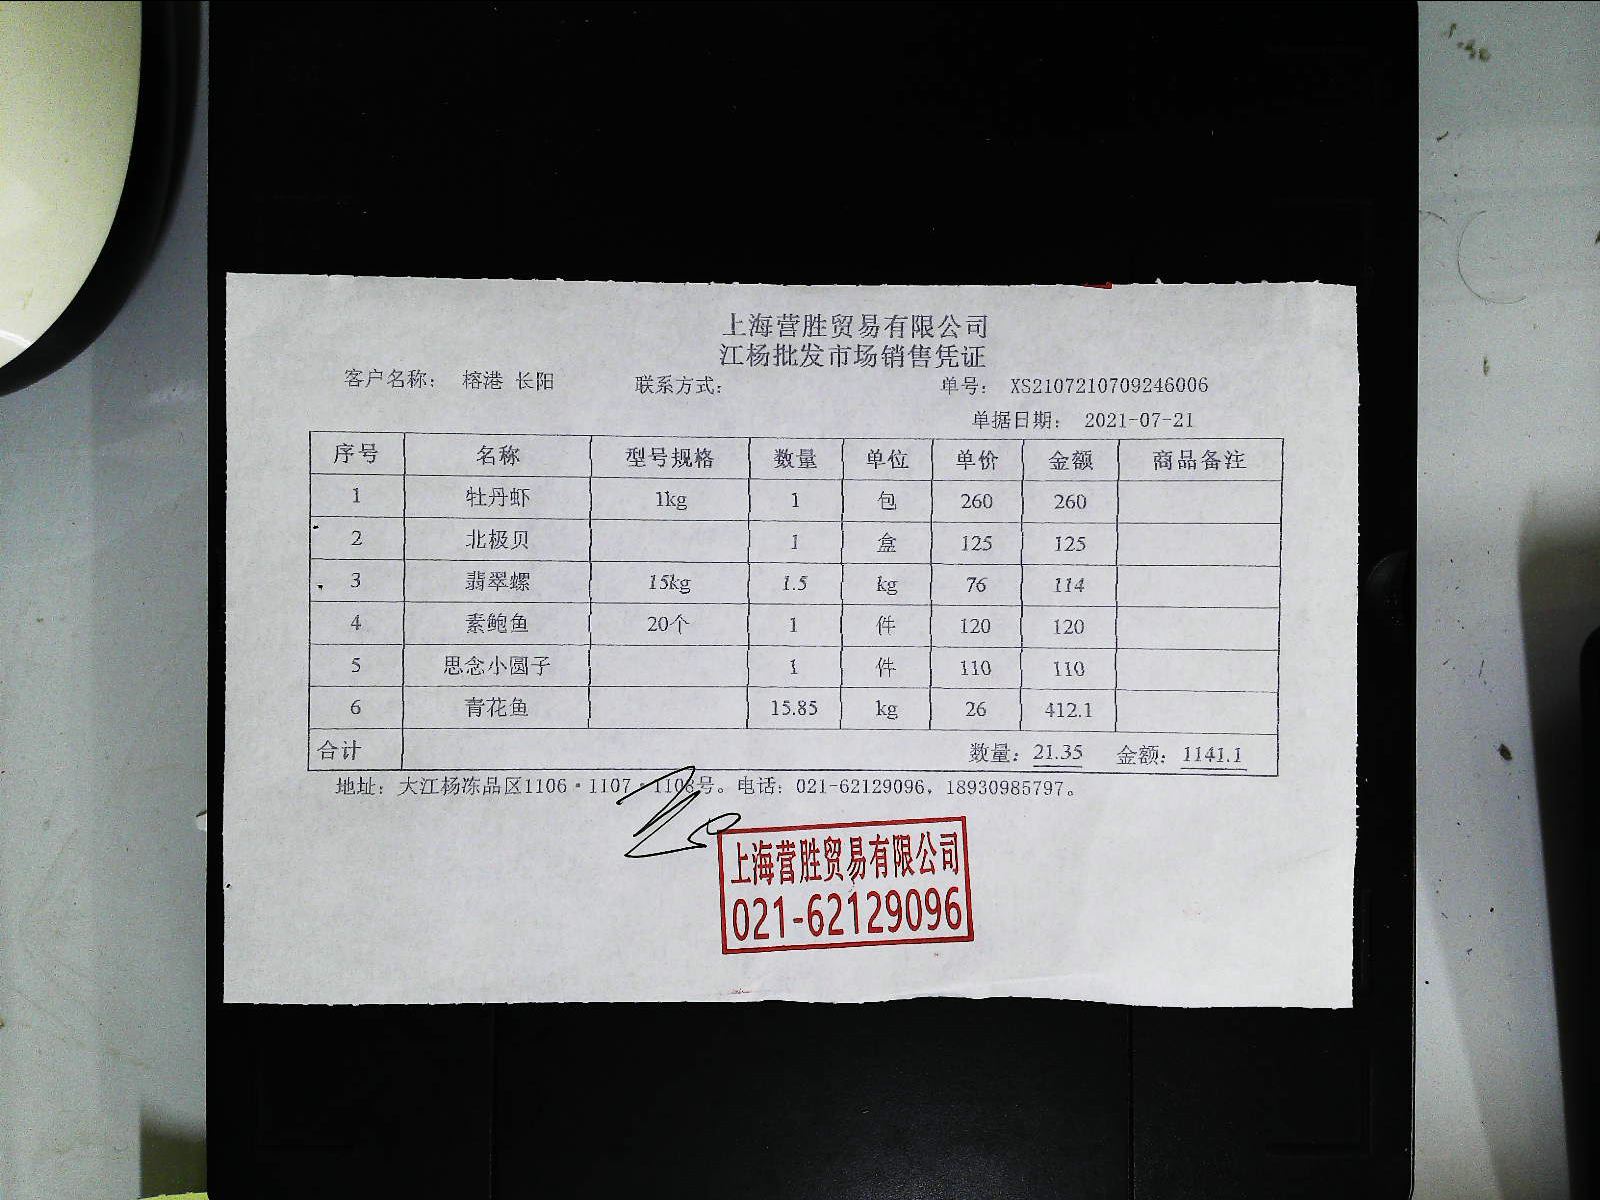 上海营胜贸易有限公司
江杨批发市场销售凭证
客户名称： 榕港 长阳 联系方式： 单号： XS2107210709246006
单据日期： 2021-07-21
序号 名称 型号规格 数量 单位 单价 金额 商品备注
1 牡丹虾 1kg 1 包 260 260
2 北极贝 1 盒 125 125
3 翡翠螺 15kg 1.5 kg 76 114
4 素鲍鱼 20个 1 件 120 120
5 思念小圆子 1 件 110 110
6 青花鱼 15.85 kg 26 412.1
合计 数量：21.35 金额：1141.1
地址：大江杨冻品区1106·1107·1108号。电话：021-62129096，18930985797。
上海营胜贸易有限公司
021-62129096